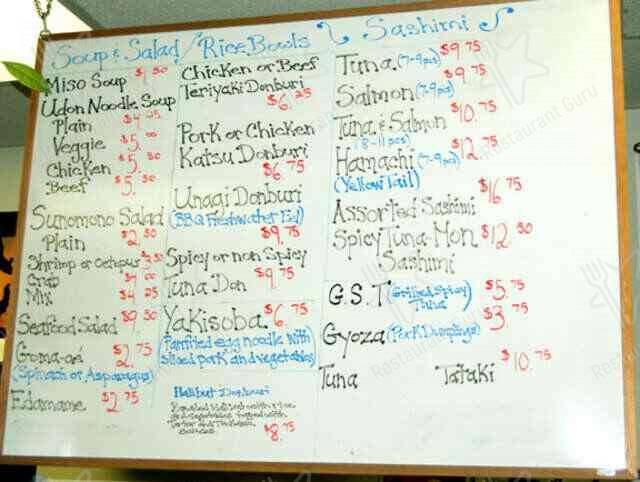 Soup & Salad / Rice Bowls
Sashimi
Miso Soup $1.50
Udon Noodle Soup
Plain $4.25
Veggie $5.00
Chicken $5.50
Beef $5.50
Sunomono Salad
Plain $2.50
Shrimp or Octopus $3.50
Crab $4.00
Mix $4.25
Seafood Salad $9.50
Goma-aé $2.75
(Spinach or Asparagus)
Edamame $2.75
Chicken or Beef
Teriyaki Donburi
$6.25
Pork or Chicken
Katsu Donburi
$6.75
Unagi Donburi
(BBQ Freshwater Eel)
$9.75
Spicy or non Spicy
Tuna Don $9.75
Yakisoba $6.75
(Panfried egg noodle with
sliced pork and vegetables)
Halibut Donburi
$8.75
Tuna (7-9 pcs) $9.75
Salmon (7-9 pcs) $9.75
Tuna & Salmon $10.75
(8-11 pcs)
Hamachi (7-9 pcs) $12.75
(Yellow Tail)
Assorted Sashimi $16.75
Spicy Tuna-Mon $12.50
Sashimi
G.S.T (Grilled Spicy Tuna) $5.75
Gyoza (Pork Dumplings) $3.75
Tuna Tataki $10.75
Restaurant Guru